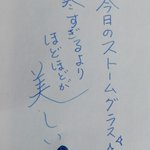 今日のストームグラス
すぎるより
ほどほどが
美しい